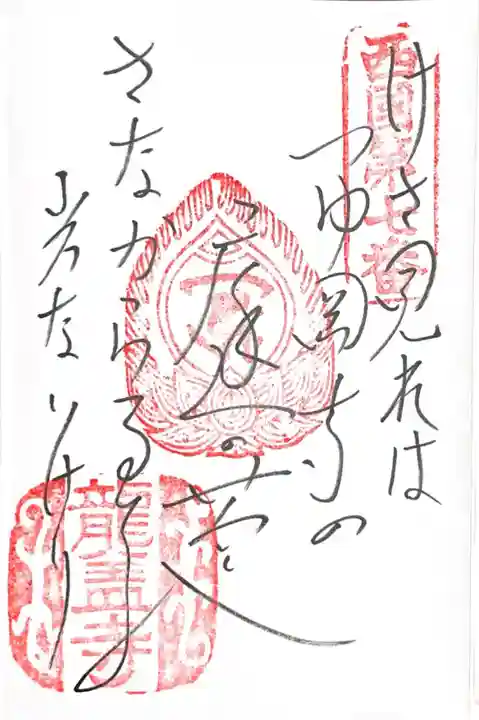 西國第七番
けさ見れは
つゆ岡寺の
庭の苔
さなからるりの
光なりけり
龍蓋寺